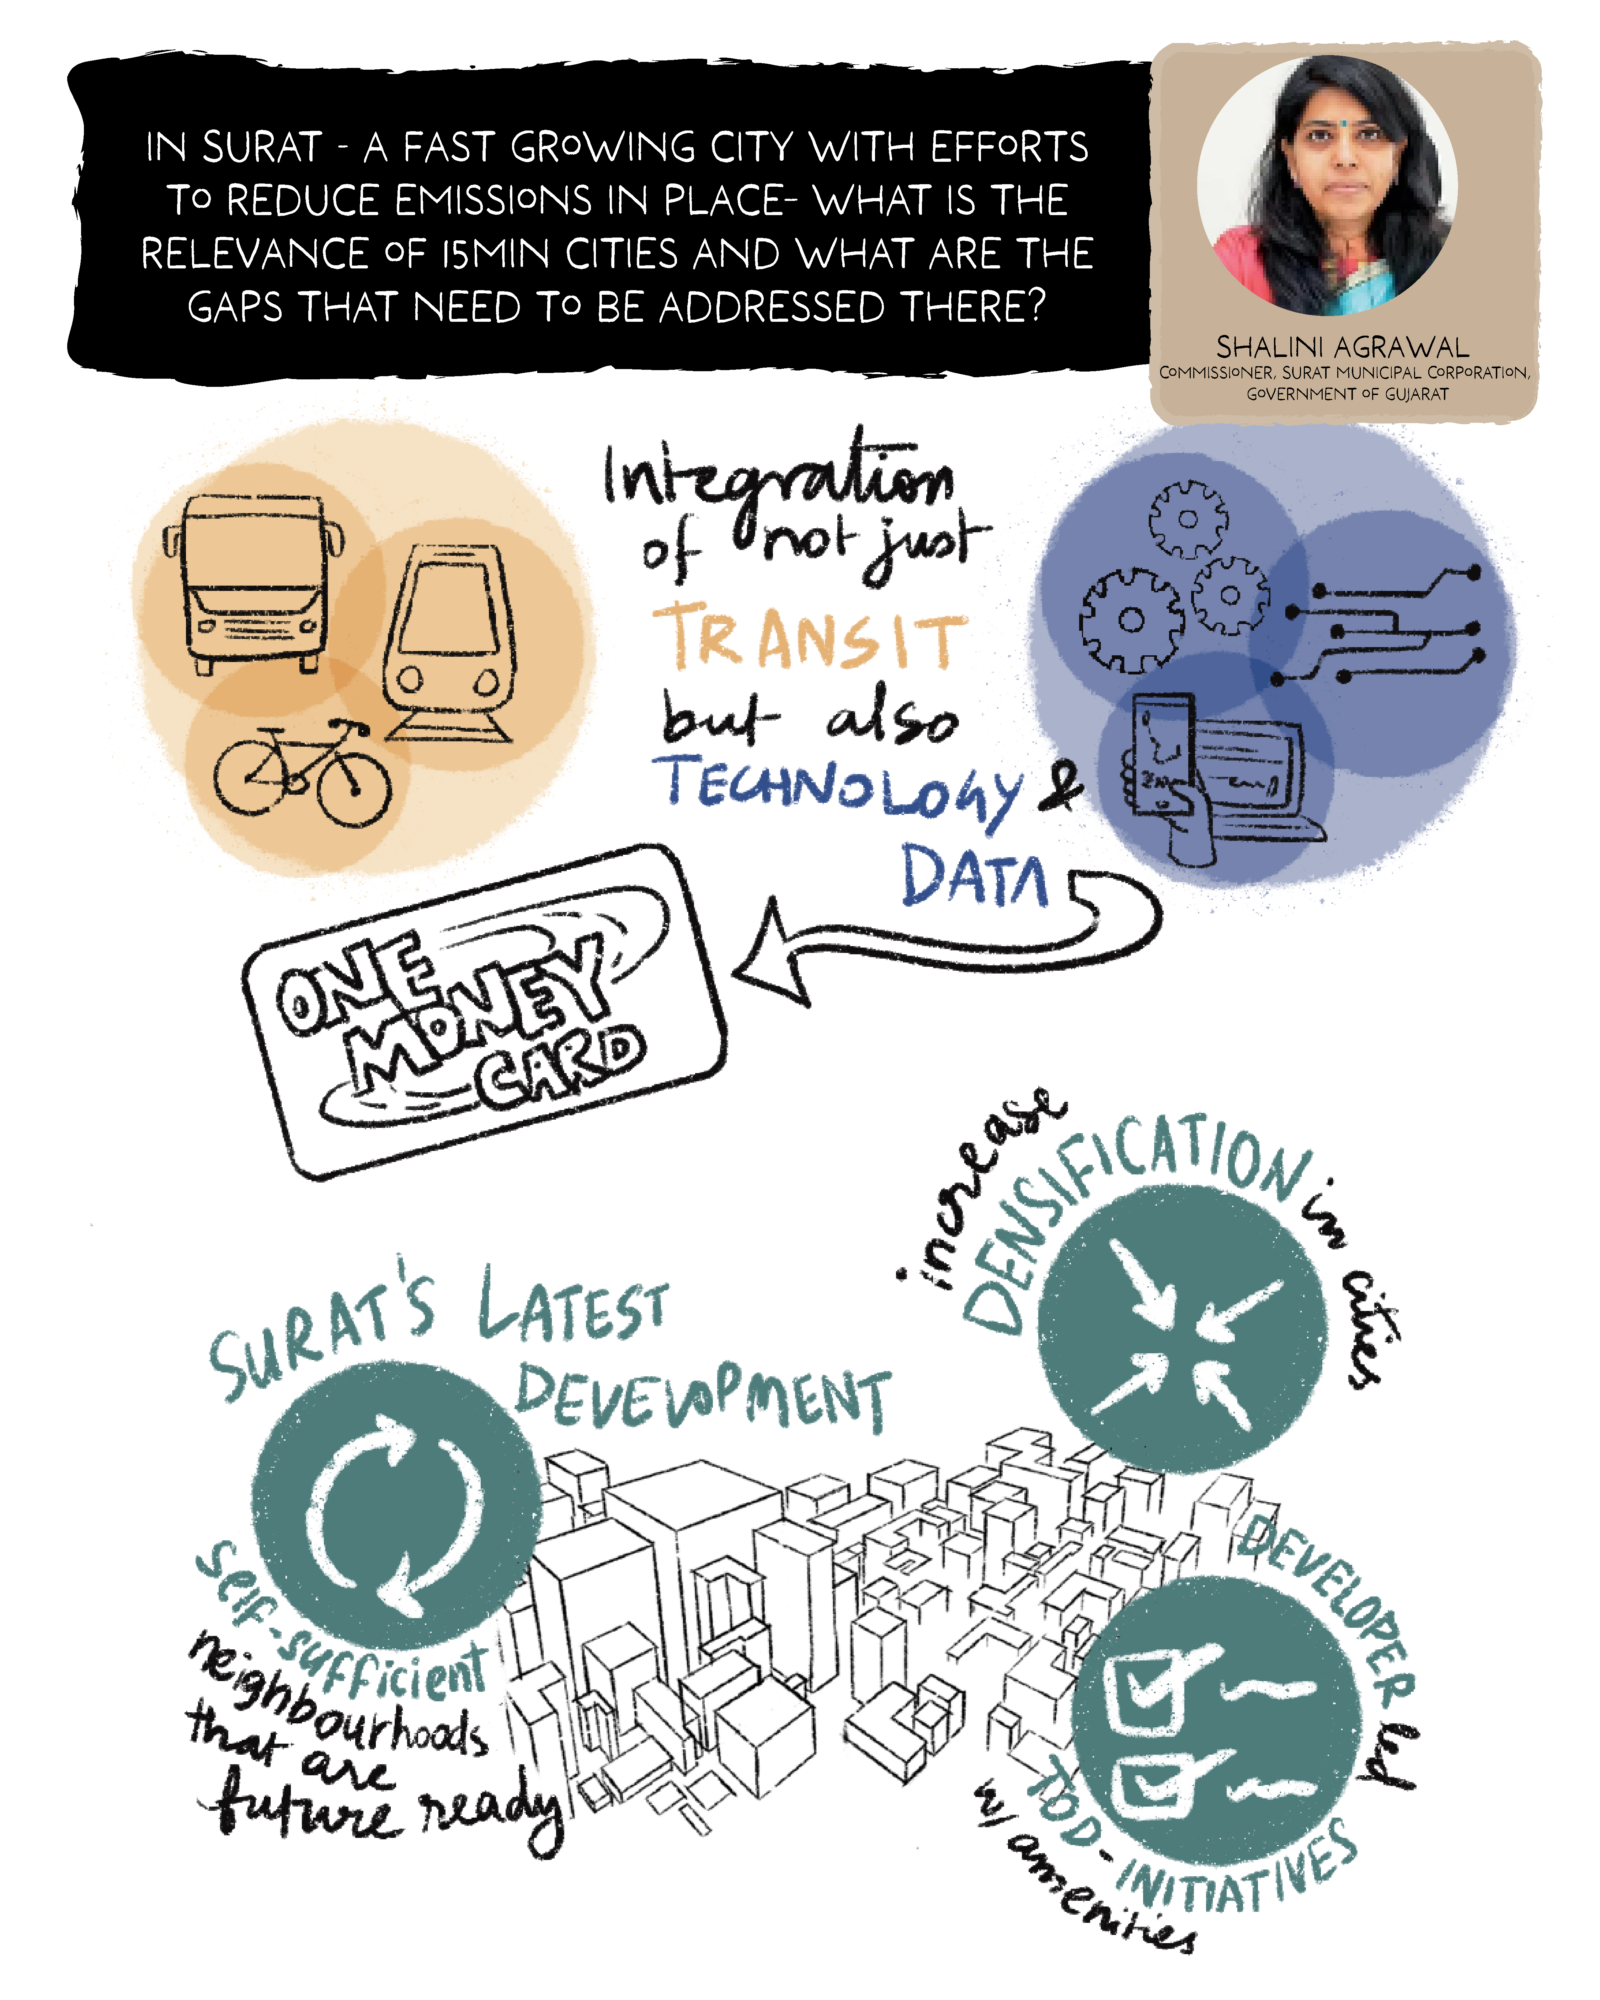 IN SURAT - A FAST GROWING CITY WITH EFFORTS
TO REDUCE EMISSIONS IN PLACE- WHAT IS THE
RELEVANCE OF 15MIN CITIES AND WHAT ARE THE
GAPS THAT NEED TO BE ADDRESSED THERE?
SHALINI AGRAWAL
COMMISSIONER, SURAT MUNICIPAL CORPORATION,
GOVERNMENT OF GUJARAT
Integration
of not just
TRANSIT
but also
TECHNOLOGY &
DATA
ONE
MONEY
CARD
increase
DENSIFICATION in cities
SURAT'S LATEST
DEVELOPMENT
self-sufficient
neighbourhoods
that are
future ready
DEVELOPER led
TOD-INITIATIVES
w/ amenities